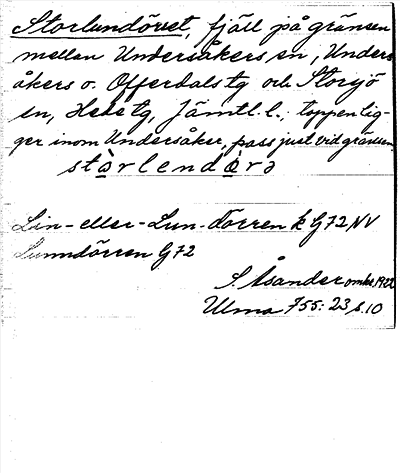 Storlundörret, fjäll på gränsen
mellan Undersåkers sn, Unders
åkers o. Offerdals tg och Storsjö
sn, Hede tg, Jämtl. l.; toppen lig-
ger inom Undersåker, pass just vid gränsen
stὰrlendὰrə
Lin- eller Lun-dörren k G72 NV
Lunndörren G72
S. Åsander omkr. 1922
Ulma 755: 23 s. 10